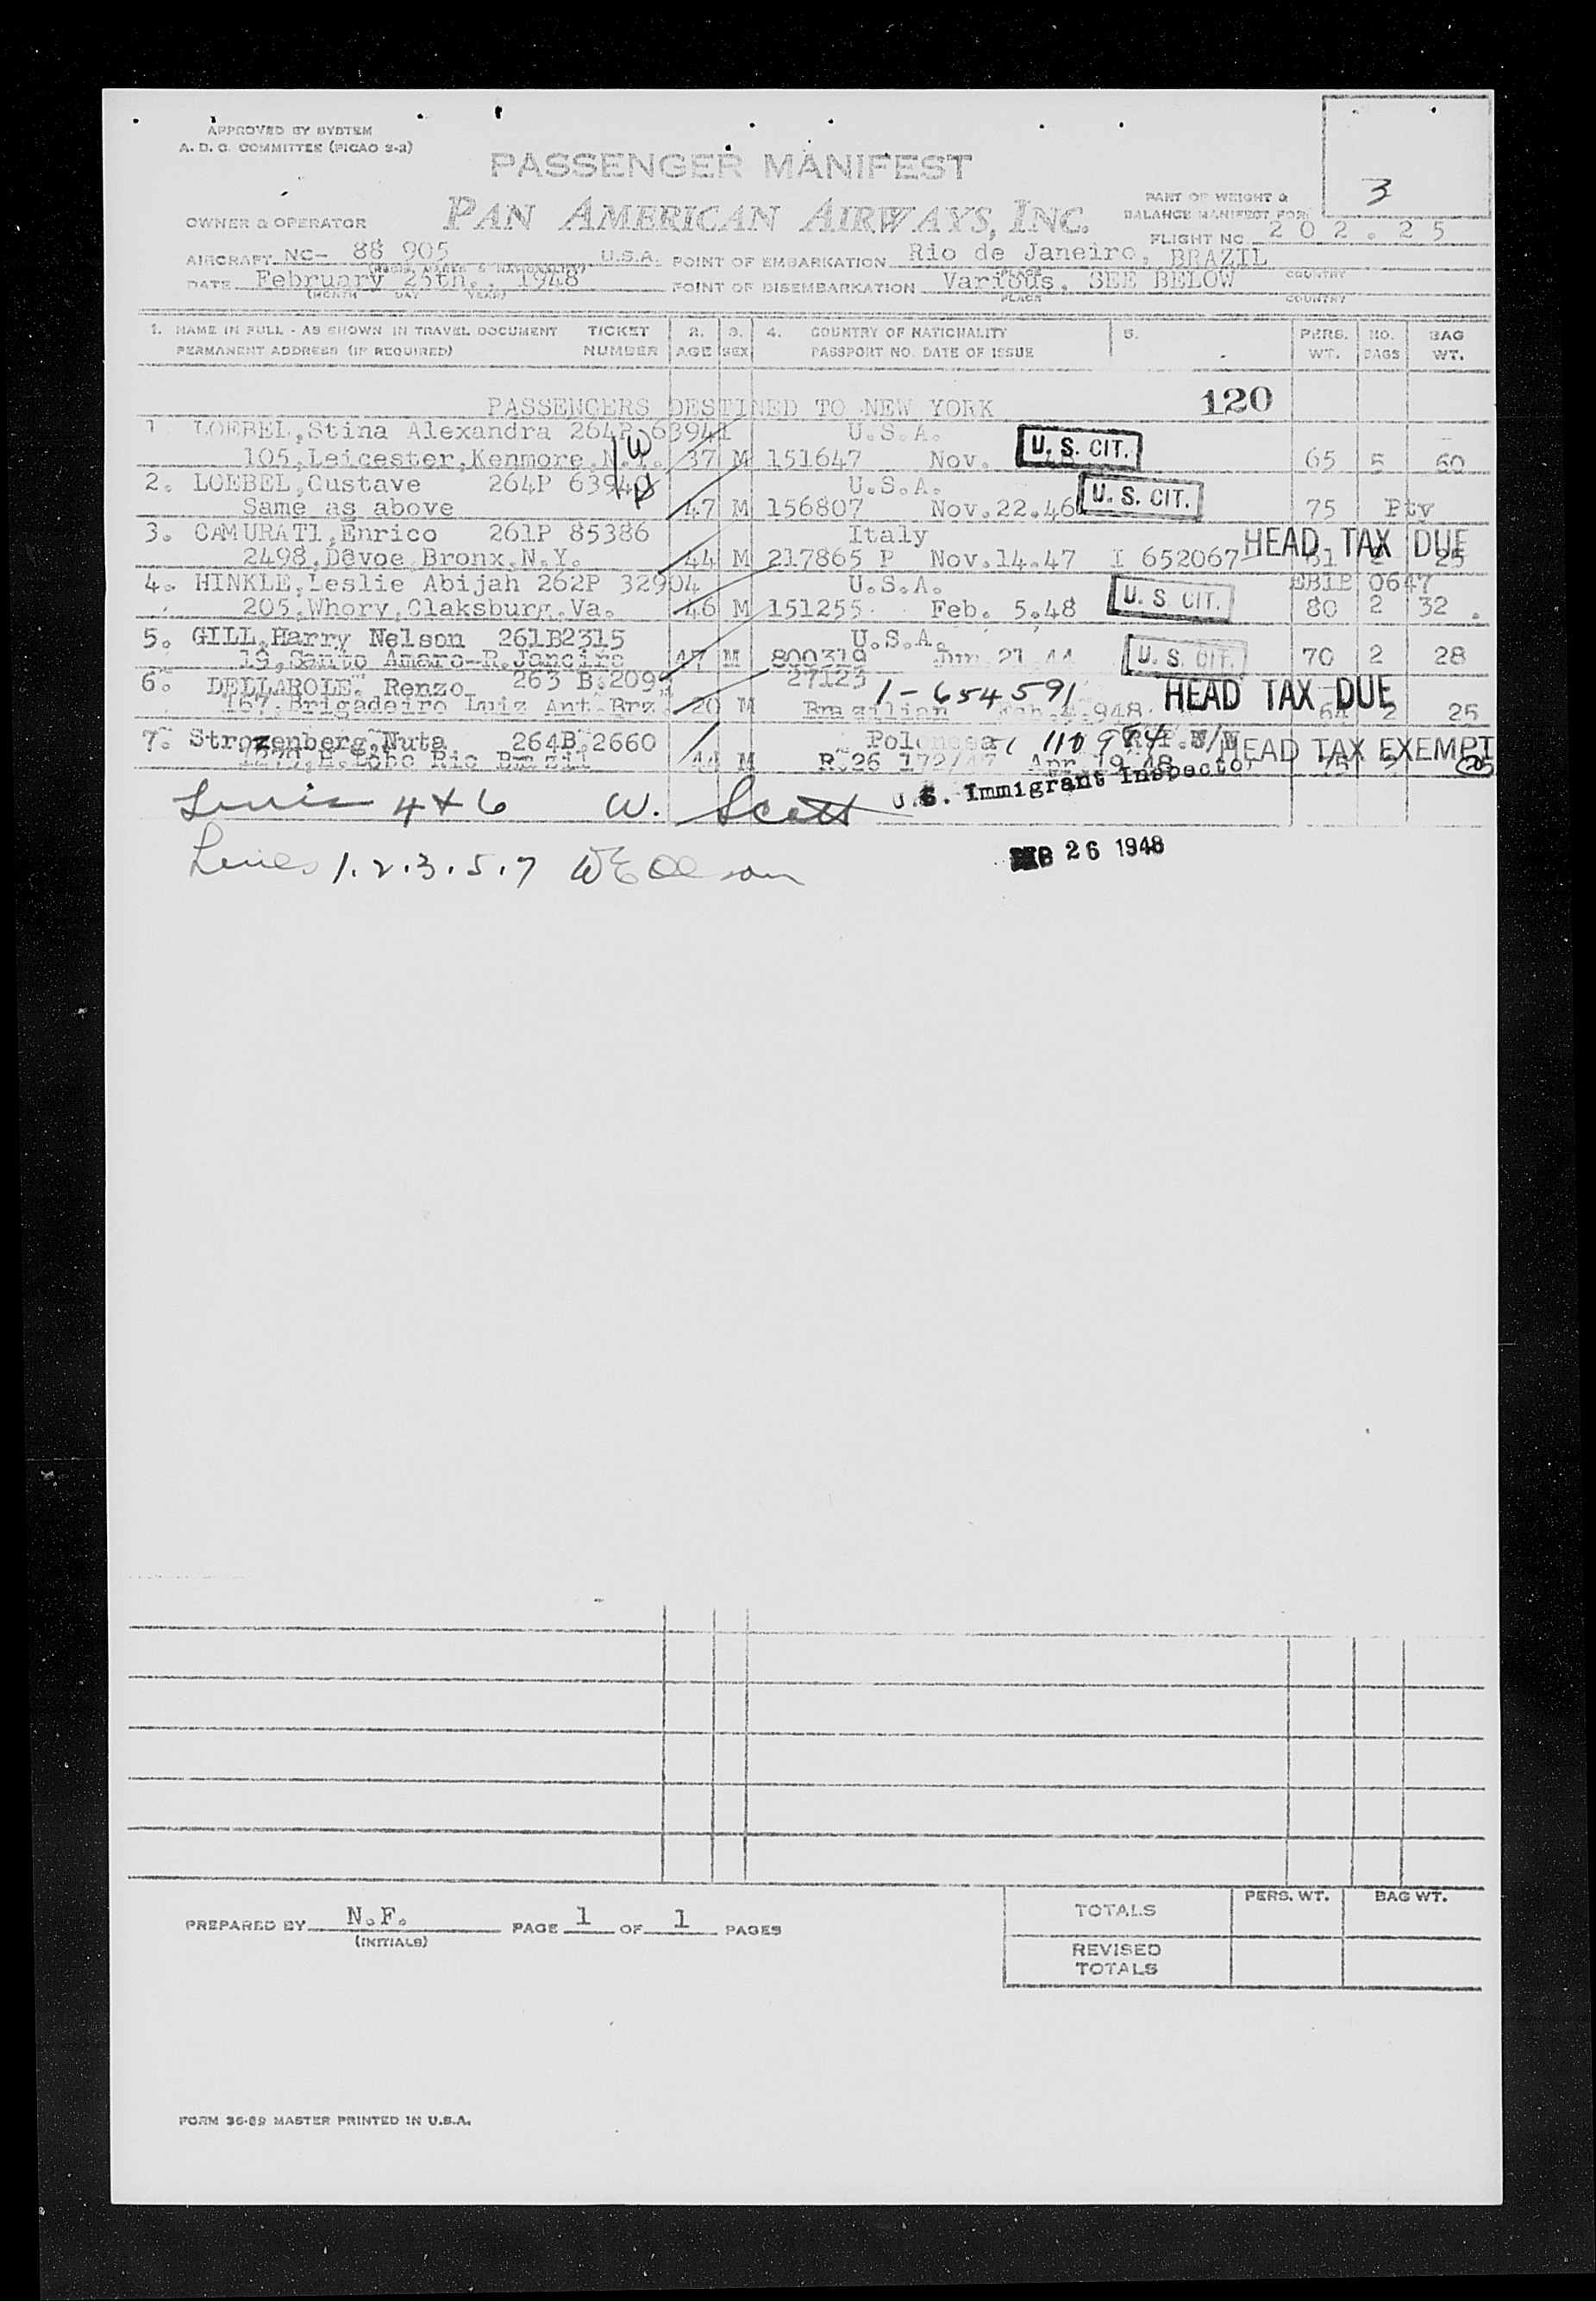 APPROVED BY SYSTEM
A. D. C. COMMITTEE (PICAO S-2)
PASSENGER MANIFEST
3
PART OF WEIGHT &
BALANCE MANIFEST FOR
OWNER & OPERATOR PAN AMERICAN AIRWAYS, INC.
FLIGHT NO. 202.25
AIRCRAFT NC- 88 905 U.S.A. POINT OF EMBARKATION Rio de Janeiro, BRAZIL
DATE February 25th., 1948 POINT OF DISEMBARKATION Various. SEE BELOW
(MONTH DAY YEAR) PLACE COUNTRY
1. NAME IN FULL - AS SHOWN IN TRAVEL DOCUMENT TICKET 2. 3. 4. COUNTRY OF NATIONALITY 5. PERS. NO. BAG
PERMANENT ADDRESS (IF REQUIRED) NUMBER AGE SEX PASSPORT NO. DATE OF ISSUE WT. BAGS WT.
PASSENGERS DESTINED TO NEW YORK 120
1 LOEBEL,Stina Alexandra 264P 63941 U.S.A.
105,Leicester,Kenmore,N.Y. 37 M 151647 Nov. U. S. CIT. 65 5 60
2. LOEBEL,Gustave 264P 63940 U.S.A.
Same as above 47 M 156807 Nov.22.46 U. S. CIT. 75 Pty
3. CAMURATI,Enrico 261P 85386 Italy HEAD TAX DUE
2498,Devoe,Bronx,N.Y. 44 M 217865 P Nov.14.47 I 652067 61 2 25
4. HINKLE,Leslie Abijah 262P 32904 U.S.A. EBIP 0647
205,Whory,Claksburg,Va. 46 M 151255 Feb. 5.48 U. S CIT. 80 2 32
5. GILL,Harry Nelson 261B2315 U.S.A.
19,Santo Amaro-R.Janeiro 47 M 800319 Jun 21 44 U. S. CIT. 70 2 28
6. DELLAROLE. Renzo 263 B.209 27123 1-654591 HEAD TAX DUE
167,Brigadeiro Luiz Ant Brz. 20 M Brazilian Feb.4.948 64 2 25
7. Strozenberg,Nuta 264B,2660 Polonesa 110 HEAD TAX EXEMPT
Rio Brazil 44 M R.26 172/47 Apr 19 48 75
4 & 6 W. Scott U.S. Immigrant Inspector
Lines 1.2.3.5.7
FEB 26 1948
PREPARED BY N.F. PAGE 1 OF 1 PAGES
(INITIALS)
PERS. WT. BAG WT.
TOTALS
REVISED
TOTALS
FORM 36-89 MASTER PRINTED IN U.S.A.